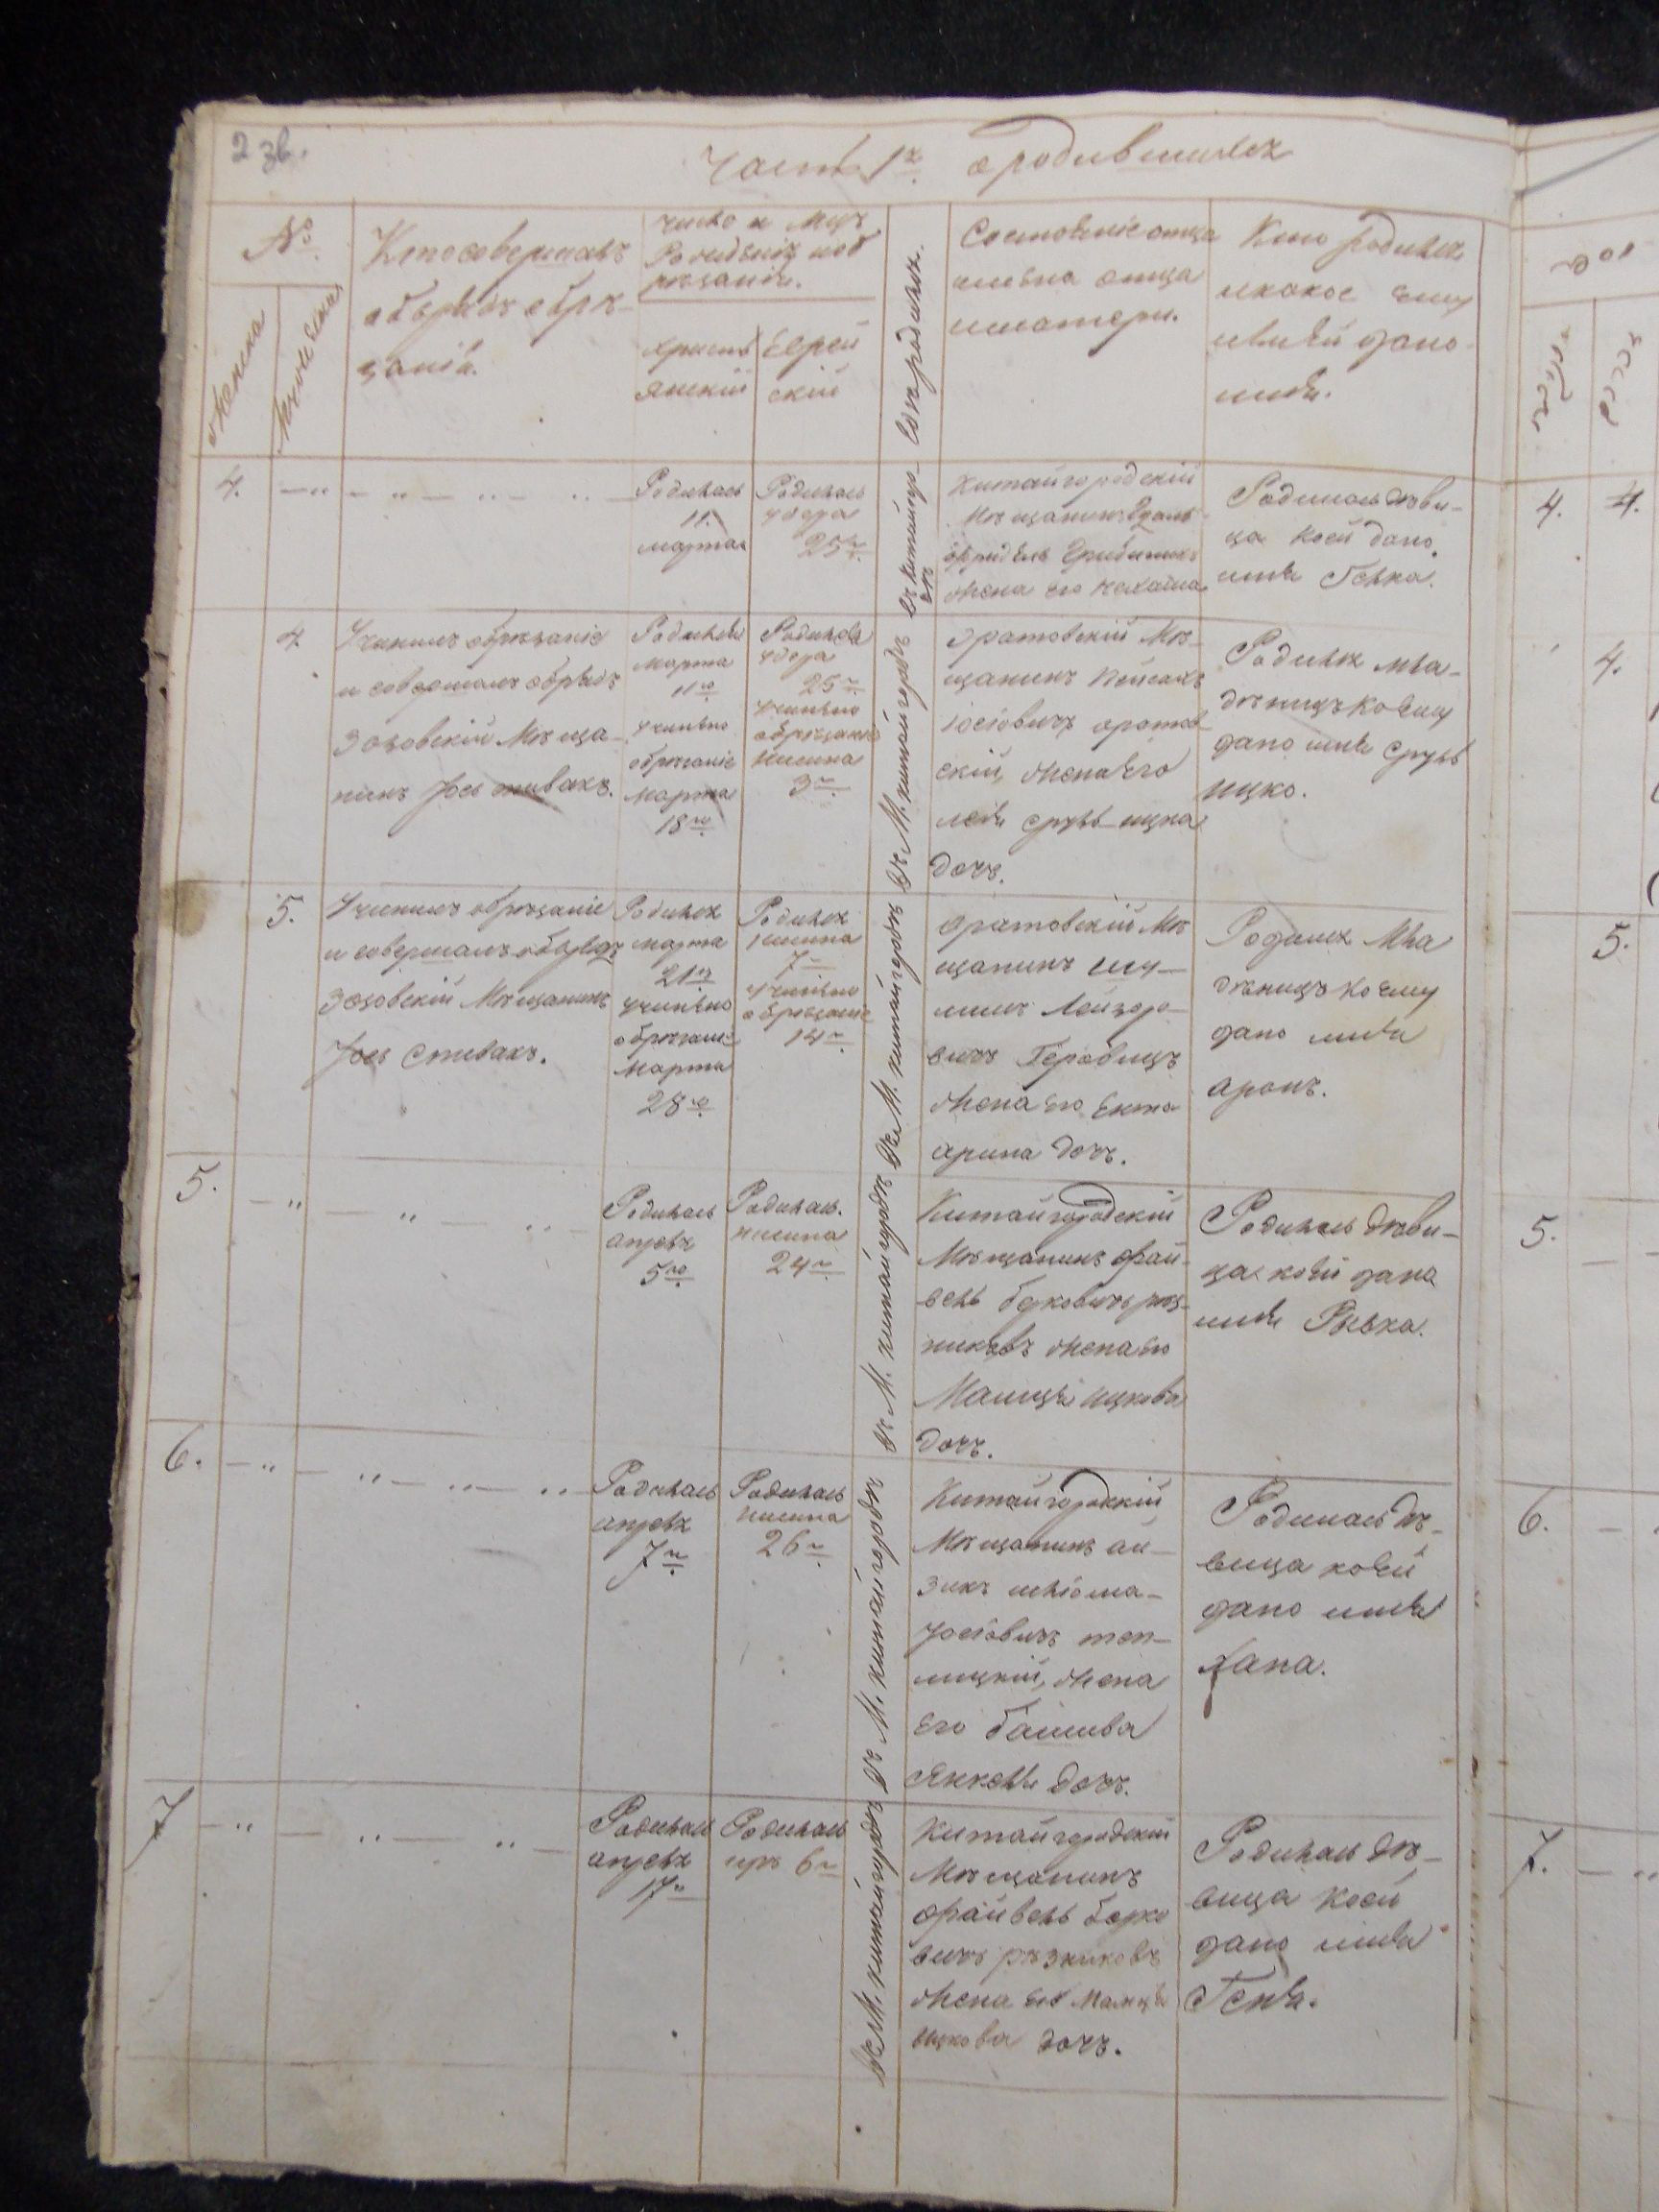 2 зв.
Часть 1я о родившихся
№
Женска
Мужеская
Кто совершалъ
обрядъ обрѣ-
занія.
Число и Мцъ
Рожденія и об
рѣзанія.
Христі
янскій
Еврей
скій
Где родился.
Состояніе отца
имена отца
и матери.
Кто родился
и какое ему
или ей дано
имя.
4.
Родилась
11.
марта
Родилась
адера
25го
въ китайгор-
дѣ
Китайгородскій
Мѣщанинъ
жена его
Родилась дѣви-
ца коей дано
имя
4
Учинилъ обрѣзаніе
и совершалъ обрядъ
Зозовскій Мѣща-
нинъ Јось спивакъ.
Родился
марта
11го
учинено
обрѣзаніе
марта
18го
Родился
адера
25го
учинено
обрѣзаніе
нисина
3го
въ М. китайгородѣ
Оратовскій Мѣ-
щанинъ Пейсахъ
Іосіовичъ оратов
скій, жена его
лея сруль ицка
дочь.
Родился мла-
денецъ коему
дано имя сруль
ицко.
5.
Учинилъ обрѣзаніе
и совершалъ обрядъ
Зозовскій Мѣщанинъ
Јось Спивакъ.
Родился
марта
21го
учинено
обрѣзаніе
марта
28го
Родился
нисина
7го
учинено
обрѣзаніе
14го
въ М. китайгородѣ
Оратовскій Мѣ
щанинъ шу-
лимъ Лейзоро-
вичъ
жена его
дочь.
Родился Мла
денецъ коему
дано имя
аронъ.
5.
Родилась
апреля
5го
Родилась.
нисина
24го
въ М. китайгородѣ
Китайгородскій
Мѣщанинъ фай-
вель берковичъ рѣз-
никовъ жена его
Малця ицкова
дочь.
Родилась дѣви-
ца коей дано
имя Рывка.
6.
Родилась
апреля
7го
Родилась
нисина
26го
въ М. китайгородѣ
Китайгородскій
Мѣщанинъ ай-
зикъ шліома-
Јосіовичъ теп-
лицкій, жена
его башива
Янкеля дочь.
Родилась дѣ-
вица коей
дано имя
хана.
7
Родилась
апреля
17го
Родилась
иръ 6го
въ М. китайгородѣ
Китайгородскій
Мѣщанинъ
файвель берко
вичъ рѣзниковъ
жена его Малця
ицкова дочь.
Родилась дѣ-
вица коей
дано имя
Геня.
4.
4.
4.
5.
5.
6.
7.